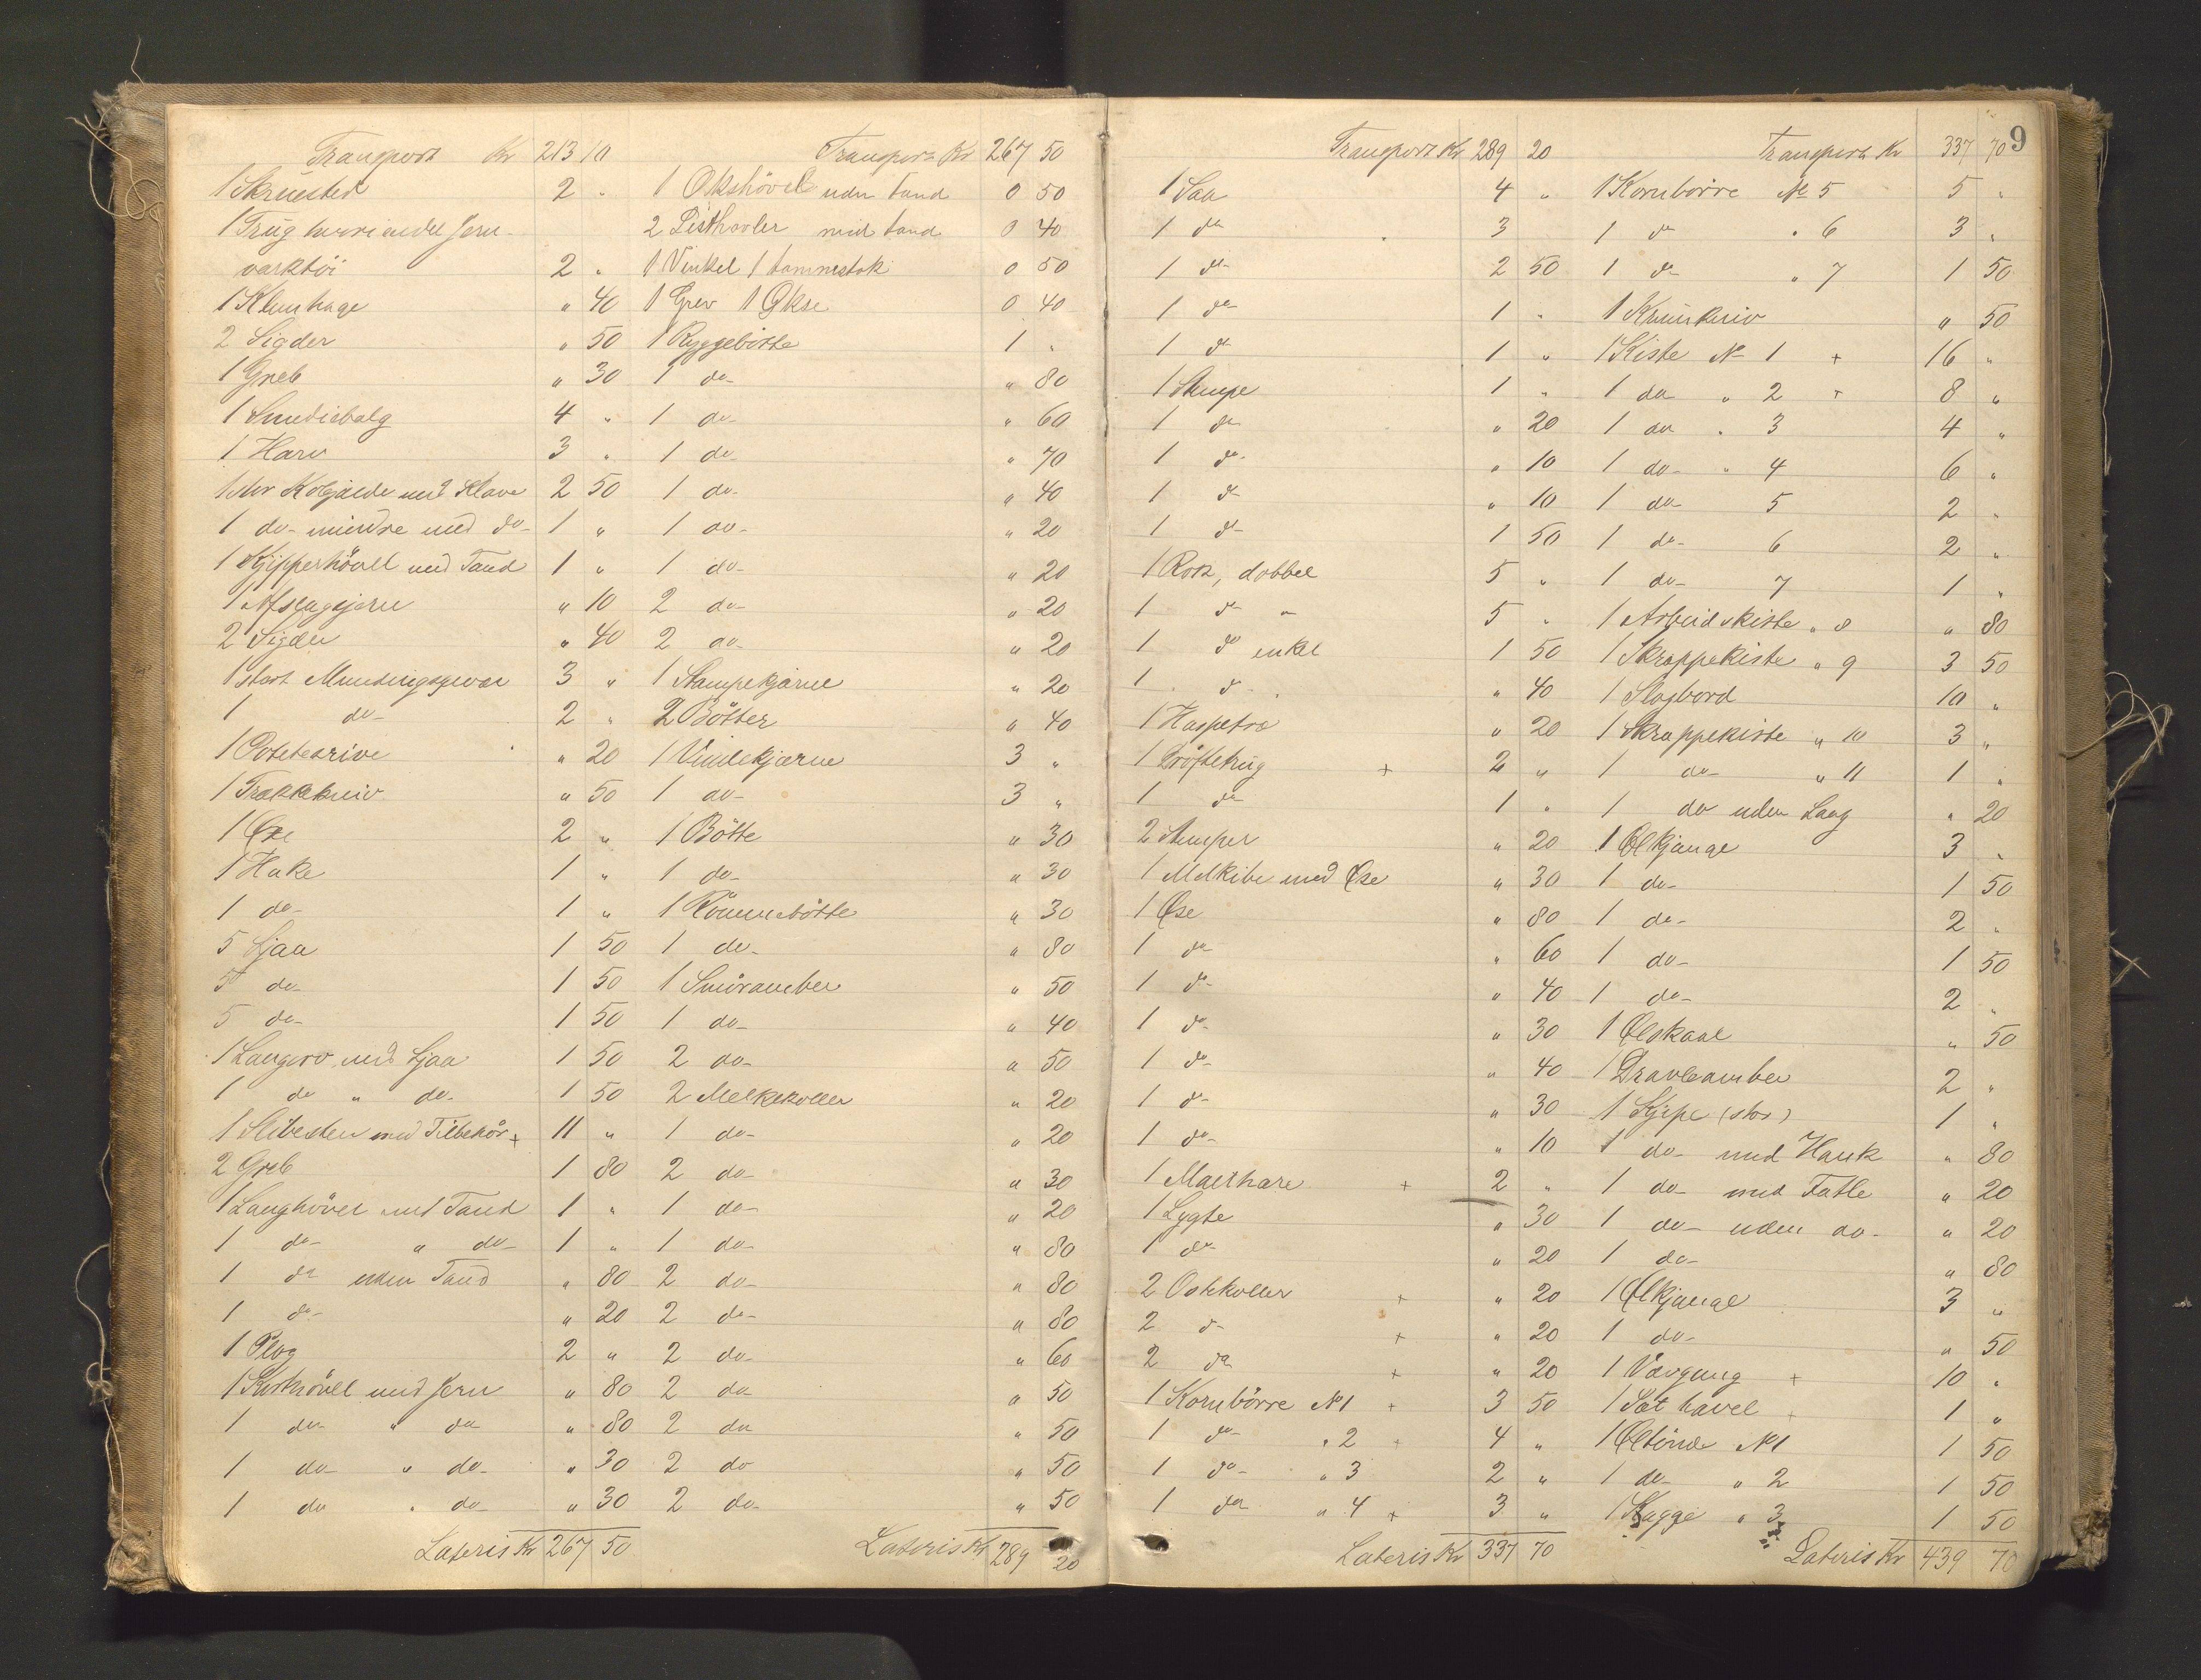 Transport Kr 213 10
1 Skruested 2 "
1 Trug hvori endel Jern-
værktöi 2 "
1 Klemhage " 40
2 Sigder " 50
1 Greb " 30
1 Smediebælg 4 "
1 Harv 3 "
1 Kobjælde med Klave 2 50
1 do mindre med do 1 "
1 Skjipperhövell med Tand 1 "
1 Afslagjern " 10
2 Sigder " 40
1 stort Mundingsgevær 3 "
1 do 2 "
1 Potetesrive " 20
1 Trækkekniv " 50
1 Öxe 2 "
1 Hake 1 "
1 do 1 "
5 Ljaa 1 50
5 do 1 50
5 do 1 50
1 Langorv med Ljaa 1 50
1 do " do 1 50
1 Slibesten med Tilbehör + 11 "
2 Greb 1 80
1 Langhövel med Tand 1 "
1 do " do 1 "
1 do uden Tand " 80
1 do " 20
1 Plog 2 "
1 Kisthövell med Jern " 80
1 do " do " 80
1 do " do " 30
1 do " do " 30
Lateris Kr 267 50
Transport Kr 267 50
1 Okshövel uden tand 0 50
2 Listhovler med tand 0 40
1 Vinkel 1 tommestok 0 50
1 Grev 1 Økse 0 40
1 Ryggebötte 1 "
1 do " 80
1 do " 60
1 do " 70
1 do " 40
1 do " 20
1 do " 20
2 do " 20
2 do " 20
1 Stampekjærne " 20
2 Bötter " 40
1 Vindekjærne 3 "
1 do 3 "
1 Bötte " 30
1 do " 30
1 Römmebötte " 30
1 do " 80
1 Smörambar " 50
1 do " 40
2 do " 50
2 Melkekoller " 20
1 do " 20
2 do " 30
1 do " 20
1 do " 80
2 do " 80
2 do " 80
2 do " 60
2 do " 50
2 do " 50
2 do " 50
2 do " 50
Lateris Kr 289 20
9
Transport Kr 289 20
1 Saa 4 "
1 do 3
1 do 2 50
1 do 1 "
1 do 1 "
1 Stampe 1 "
1 do " 20
1 do " 10
1 do " 10
1 do 1 50
1 Rok, dobbel 5 "
1 do " 5 "
1 do enkel 1 50
1 do " " 40
1 Haspetræ " 20
1 Dröftetrug + 2 "
1 do 1 "
2 Stamper " 20
1 Melkibe med Öse " 30
1 Öse " 80
1 do " 60
1 do " 40
1 do " 30
1 do " 40
1 do " 30
1 do " 10
1 Malthare + 2 "
1 Lygte " 30
1 do " 20
2 Ostekoller + " 20
2 do + " 20
2 do + " 20
1 Kornbörre No 1 + 3 50
1 do " 2 + 4 "
1 do " 3 2 "
1 do " 4 + 3 "
Lateris Kr 337 70
Transport Kr 337 70
1 Kornbörre No 5 5 "
1 do " 6 3 "
1 do " 7 1 50
1 Krumkniv " 50
1 Kiste No 1 + 16 "
1 do " 2 + 8 "
1 do " 3 4 "
1 do " 4 6 "
1 do 5 2 "
1 do 6 2 "
1 do 7 1 "
1 Arbeidskiste " 8 " 80
1 Skrappekiste " 9 3 50
1 Slagbord 10 "
1 Skrappekiste " 10 3 "
1 do " 11 1 "
1 do uden Laag " 20
1 Ølkjænge 3 "
1 do 1 50
1 do 2 "
1 do 1 50
1 do 2 "
1 Ølskaal " 50
1 Dravleambar 2 "
1 Kjipe (stor) 1 "
1 do med Hank " 80
1 do med Fatle " 20
1 do uden do " 20
1 do " 80
1 Ølkjænge 3 "
1 do " 50
1 Vævgang + 10 "
1 Sæt havel + 1 "
1 Øltönde No 1 1 50
1 do " 2 1 50
1 Kagge " 3 1 50
Lateris Kr 439 70